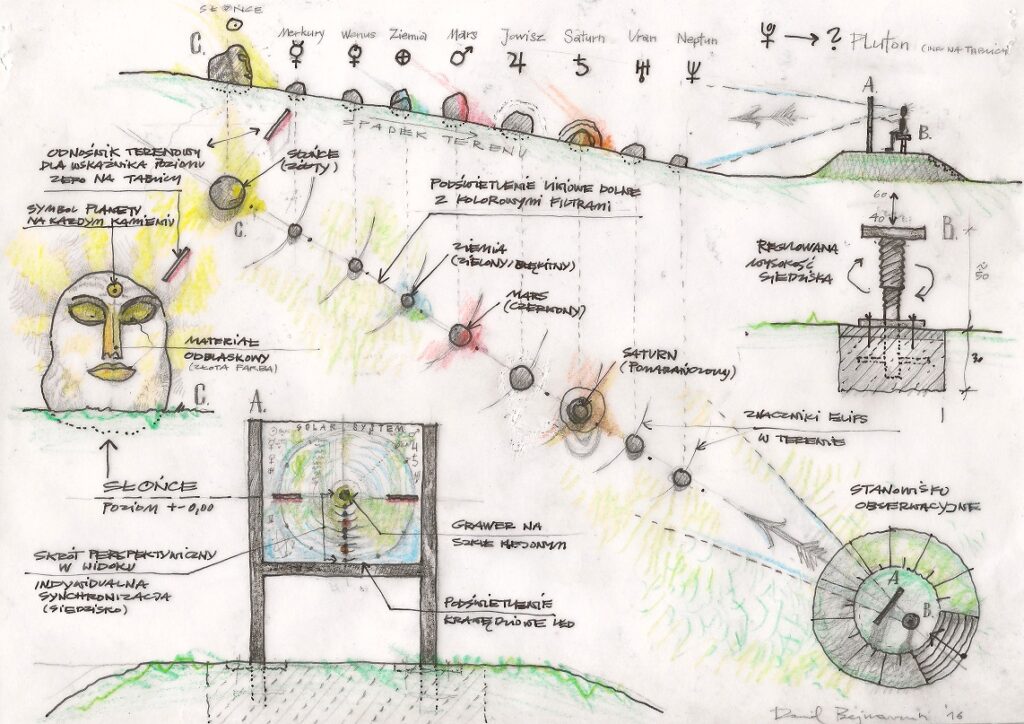 SŁOŃCE
C.
Merkury
Wenus
Ziemia
Mars
Jowisz
Saturn
Uran
Neptun
→ ? PLUTON
A.
B.
SPADEK TERENU
ODNOŚNIK TERENOWY
DLA WSKAŹNIKA POZIOMU
ZERO NA TABLICY
SŁOŃCE
(ŻÓŁTY)
C.
SYMBOL PLANETY
NA KAŻDYM KAMIENIU
PODŚWIETLENIE LINIOWE DOLNE
Z KOLOROWYMI FILTRAMI
ZIEMIA
(ZIELONY/BŁĘKITNY)
MARS
(CZERWONY)
60
40
B.
REGULOWANA
WYSOKOŚĆ
SIEDZISKA
30
MATERIAŁ
ODBLASKOWY
(ZŁOTA FARBA)
C.
SATURN
(POMARAŃCZOWY)
A.
SOLAR SYSTEM
ZNACZNIKI ELIPS
W TERENIE
SŁOŃCE
POZIOM +-0,00
STANOWISKO
OBSERWACYJNE
GRAWER NA
SZKLE KLEJONYM
SKRÓT PERSPEKTYWICZNY
W WIDOKU
INDYWIDUALNA
SYNCHRONIZACJA
(SIEDZISKO)
PODŚWIETLENIE
KRAWĘDZIOWE LED
A.
B.
'16